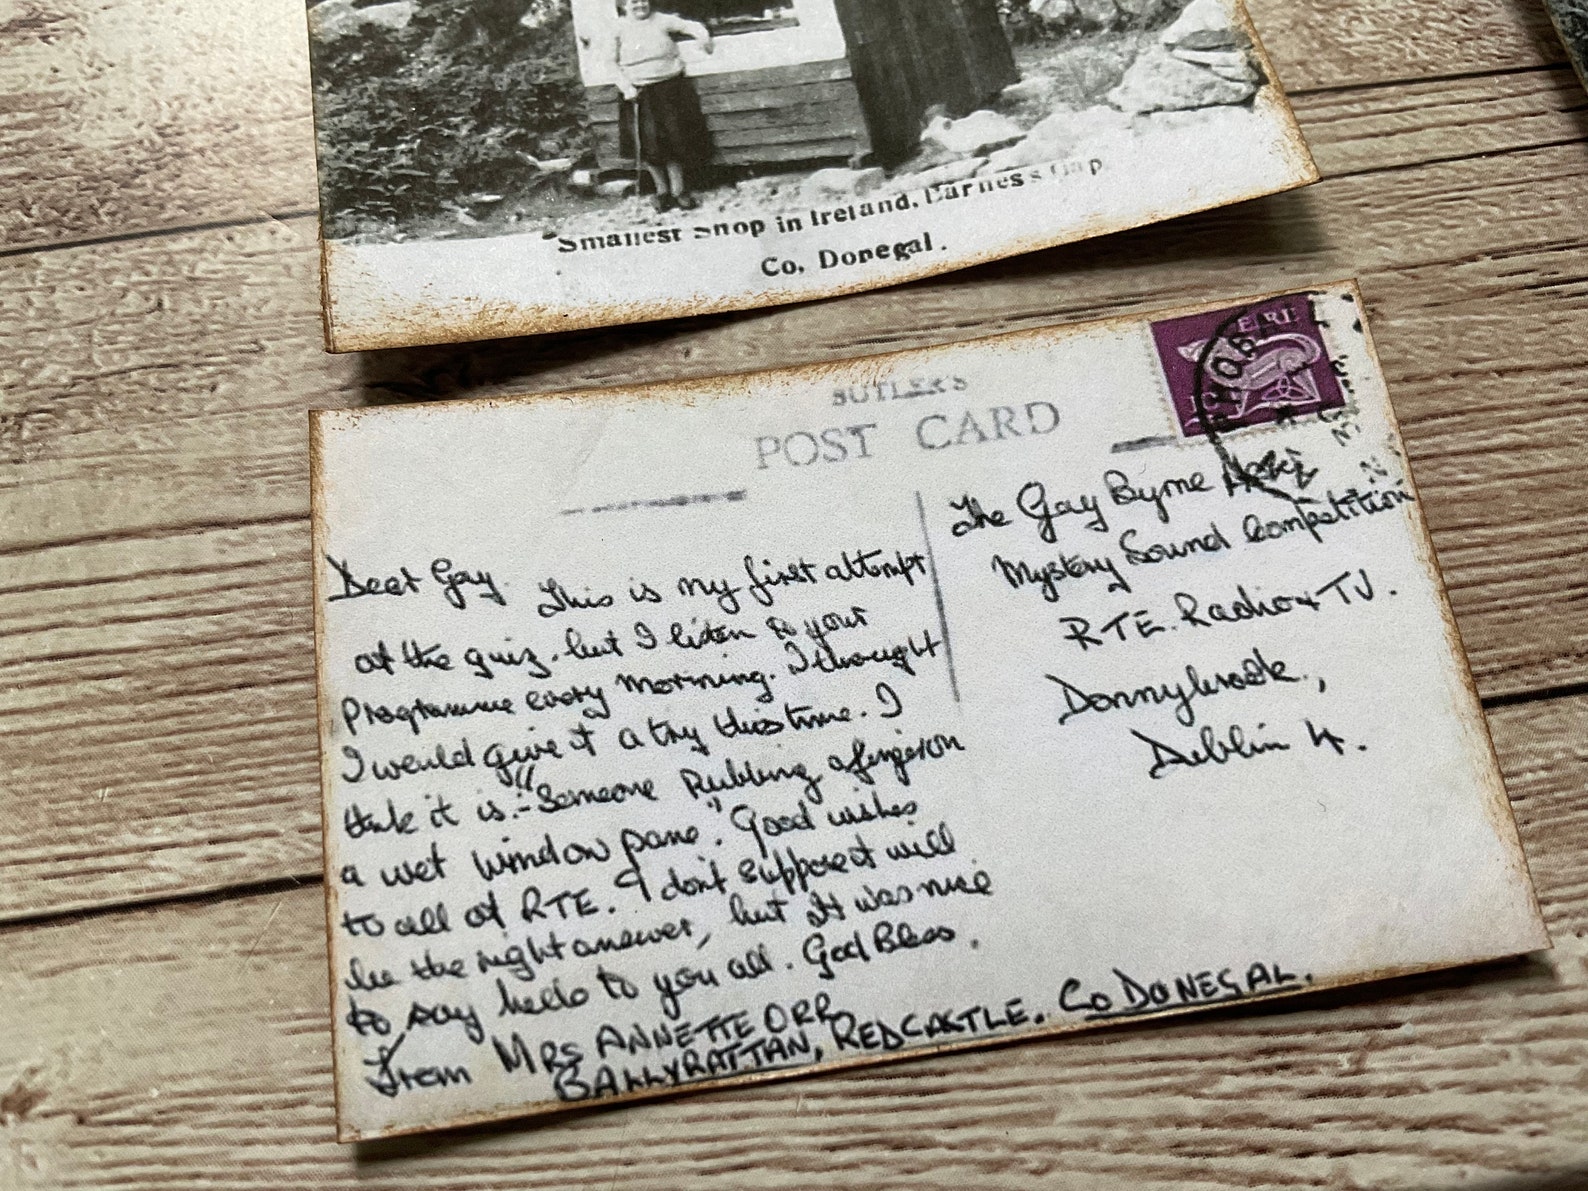 Smallest Shop in Ireland, Barness Gap,
Co, Donegal.
BUTLER'S
POST CARD
EIRE
Dear Gay. This is my first attempt
at the quiz. but I listen to your
Programme every morning. I thought
I would give it a try this time. I
think it is:- "Someone Rubbing a finger on
a wet window pane". Good wishes
to all at RTE. I don't suppose it will
be the right answer, but it was nice
to say hello to you all. God Bless.
From MRS ANNETTE ORR
BALLYRATTAN, REDCASTLE. CO DONEGAL.
The Gay Byrne
Mystery Sound Competition
RTE. Radio & TV.
Donnybrook.,
Dublin 4.